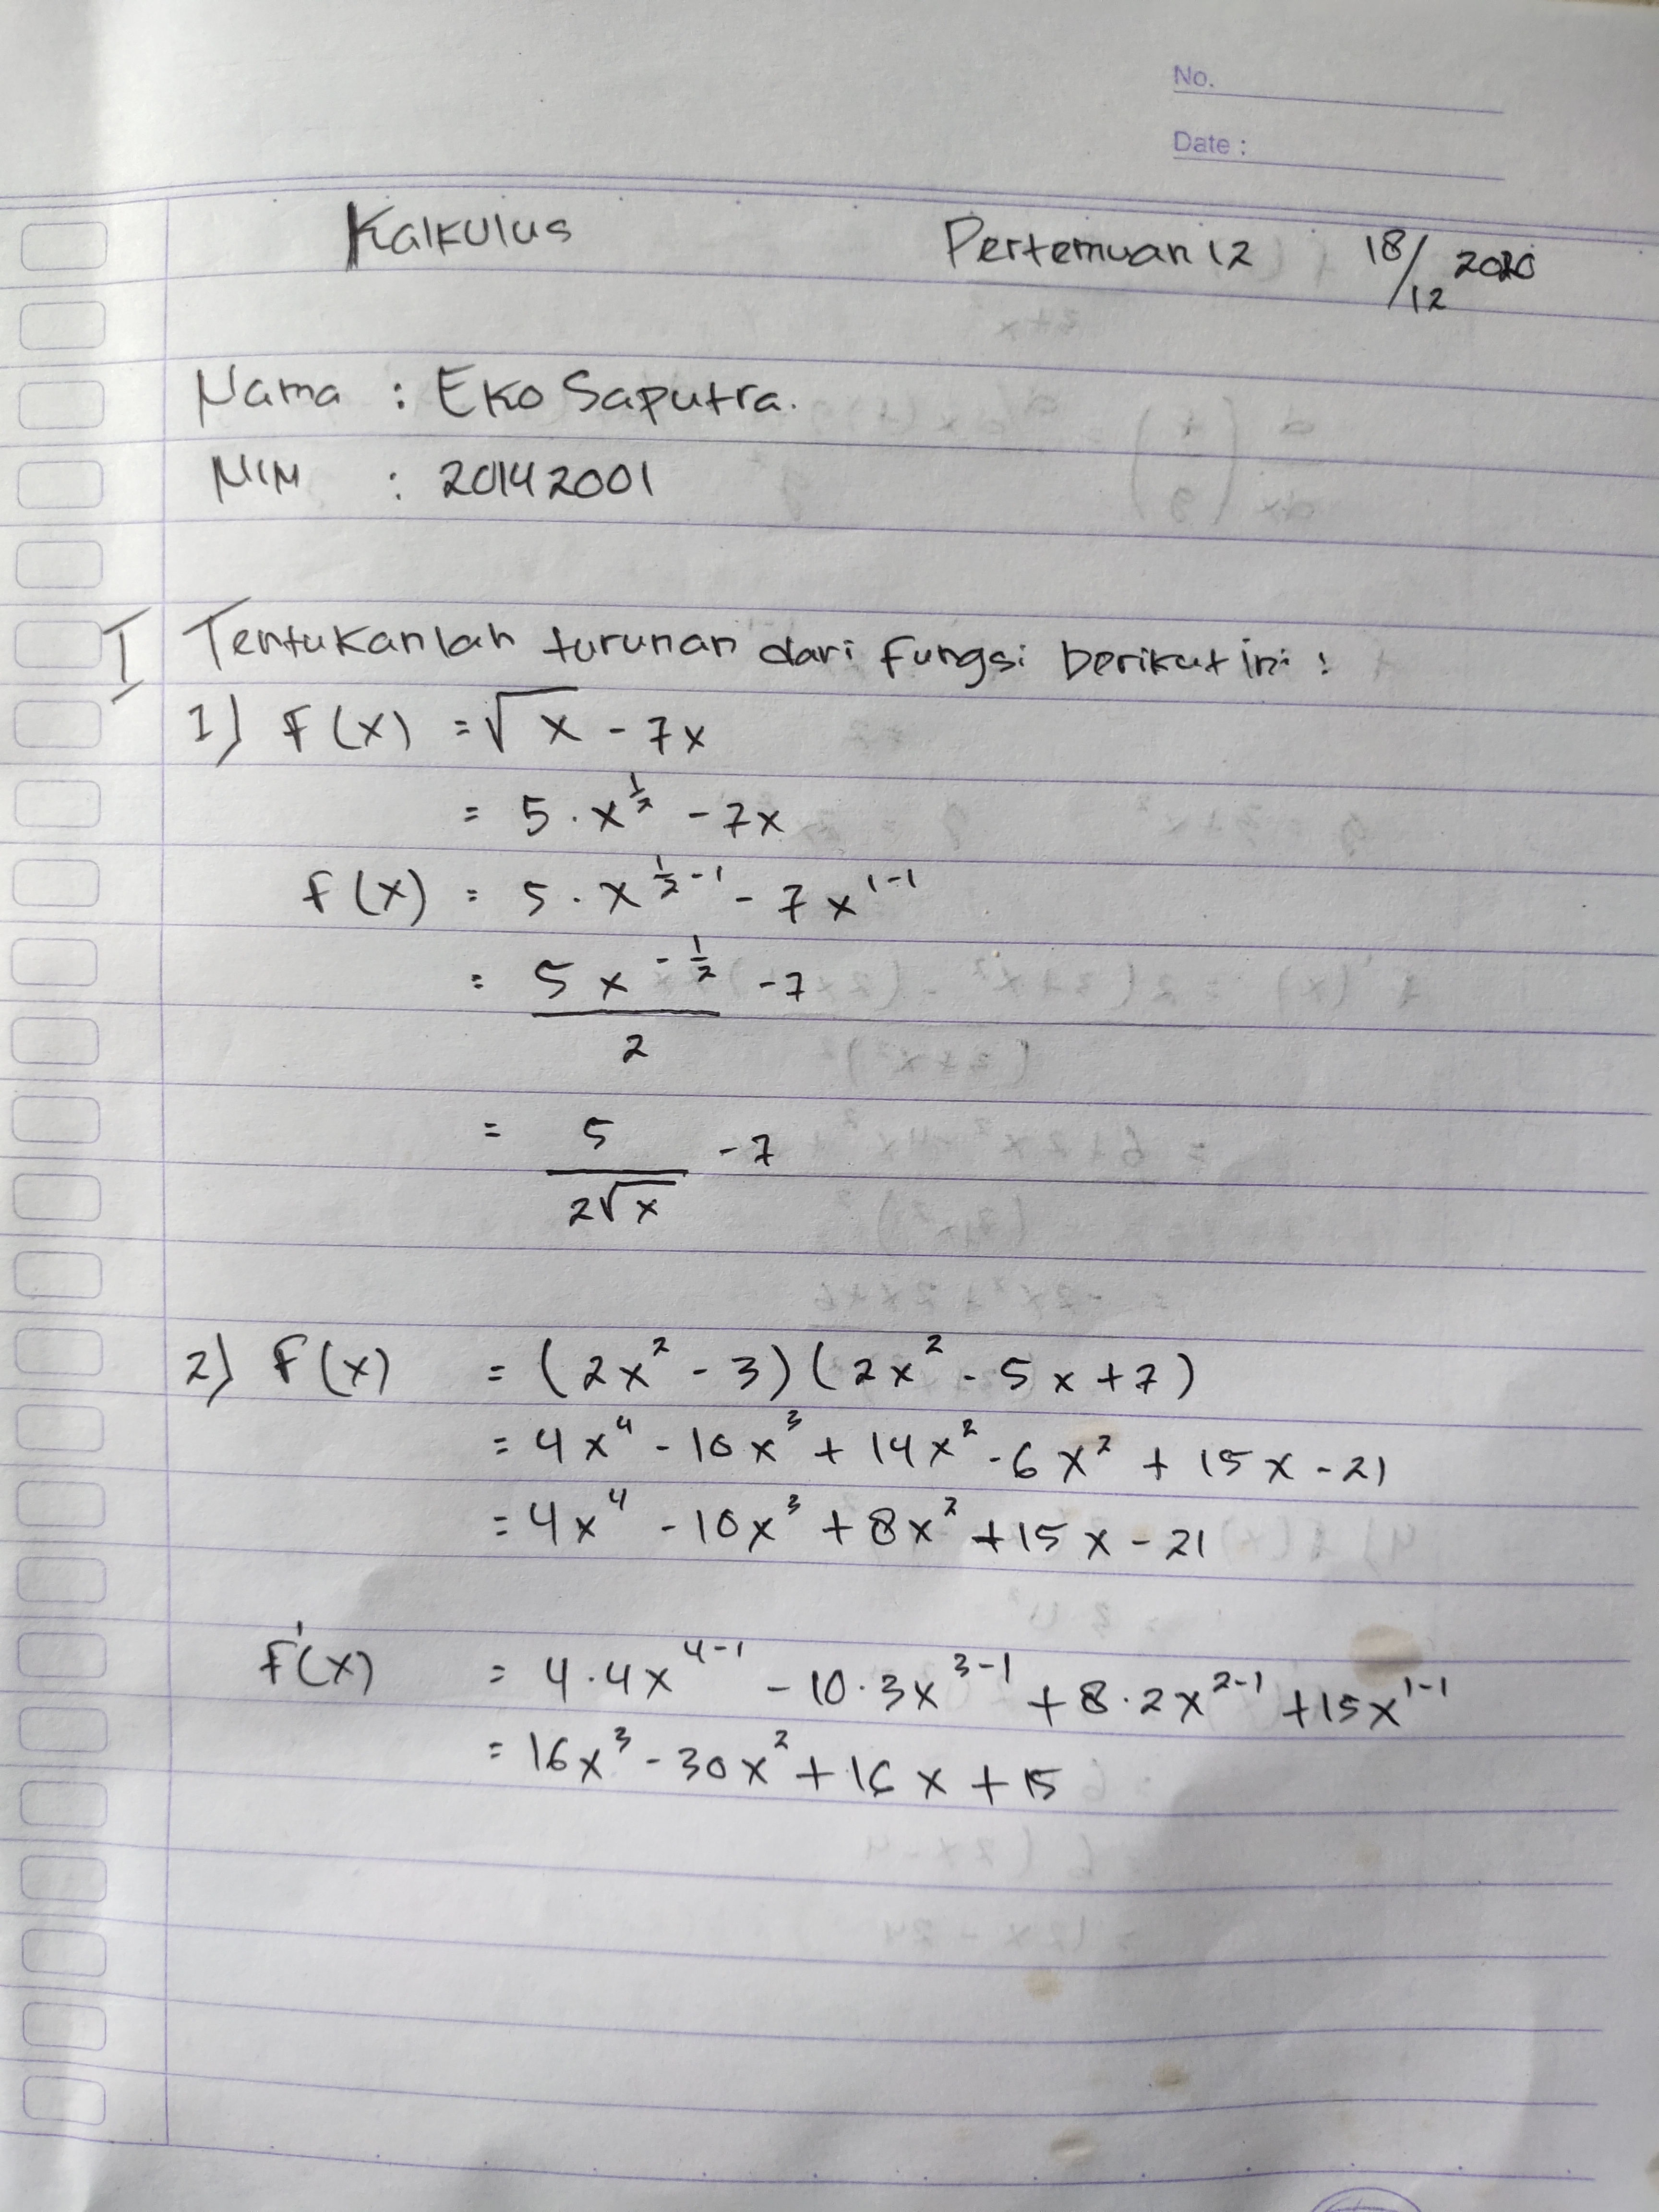 No.
Date :
Kalkulus Pertemuan 12 18/12 2020
Nama : Eko Saputra.
NIM : 20142001
I Tentukanlah turunan dari fungsi berikut ini :
1) f(x) = √x - 7x
= 5 . x^½ - 7x
f(x) = 5 . x^(½-1) - 7x^(1-1)
= 5x^(-½)/2 - 7
= 5/(2√x) - 7
2) f(x) = (2x² - 3)(2x² - 5x + 7)
= 4x⁴ - 10x³ + 14x² - 6x² + 15x - 21
= 4x⁴ - 10x³ + 8x² + 15x - 21
f'(x) = 4.4x^(4-1) - 10.3x^(3-1) + 8.2x^(2-1) + 15x^(1-1)
= 16x³ - 30x² + 16x + 15